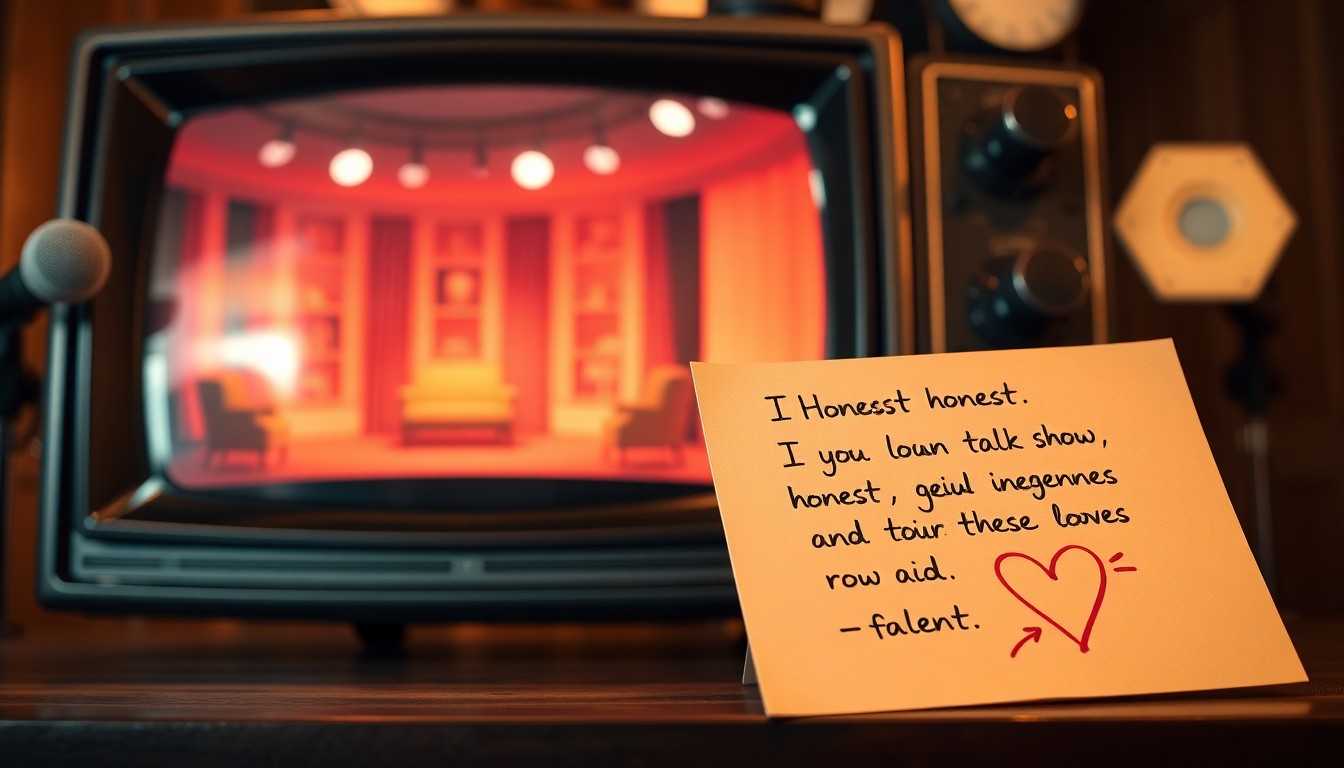 I Honesst honest.
I you loun talk show,
honest, geiul inegennes
and toir these loves
row aid.
– falent.